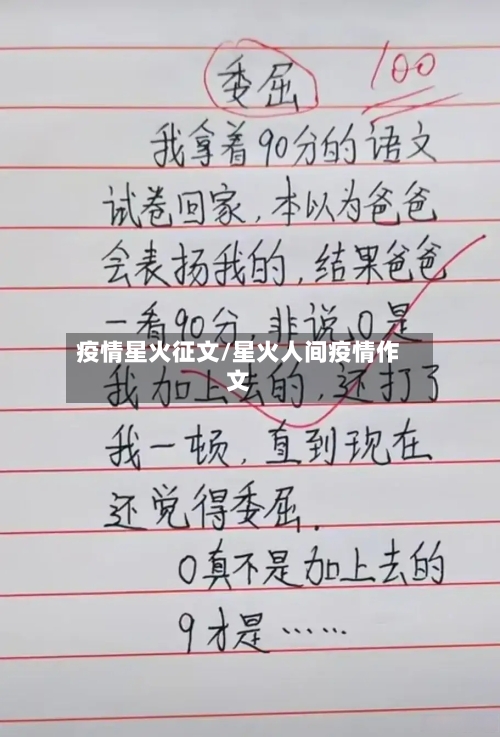 委屈 100
我拿着90分的语文
试卷回家,本以为爸爸
会表扬我的,结果爸爸
一看90分,非说0是
疫情星火征文/星火人间疫情作
文
我加上去的,还打了
我一顿,直到现在
还觉得委屈.
0真不是加上去的
9才是……